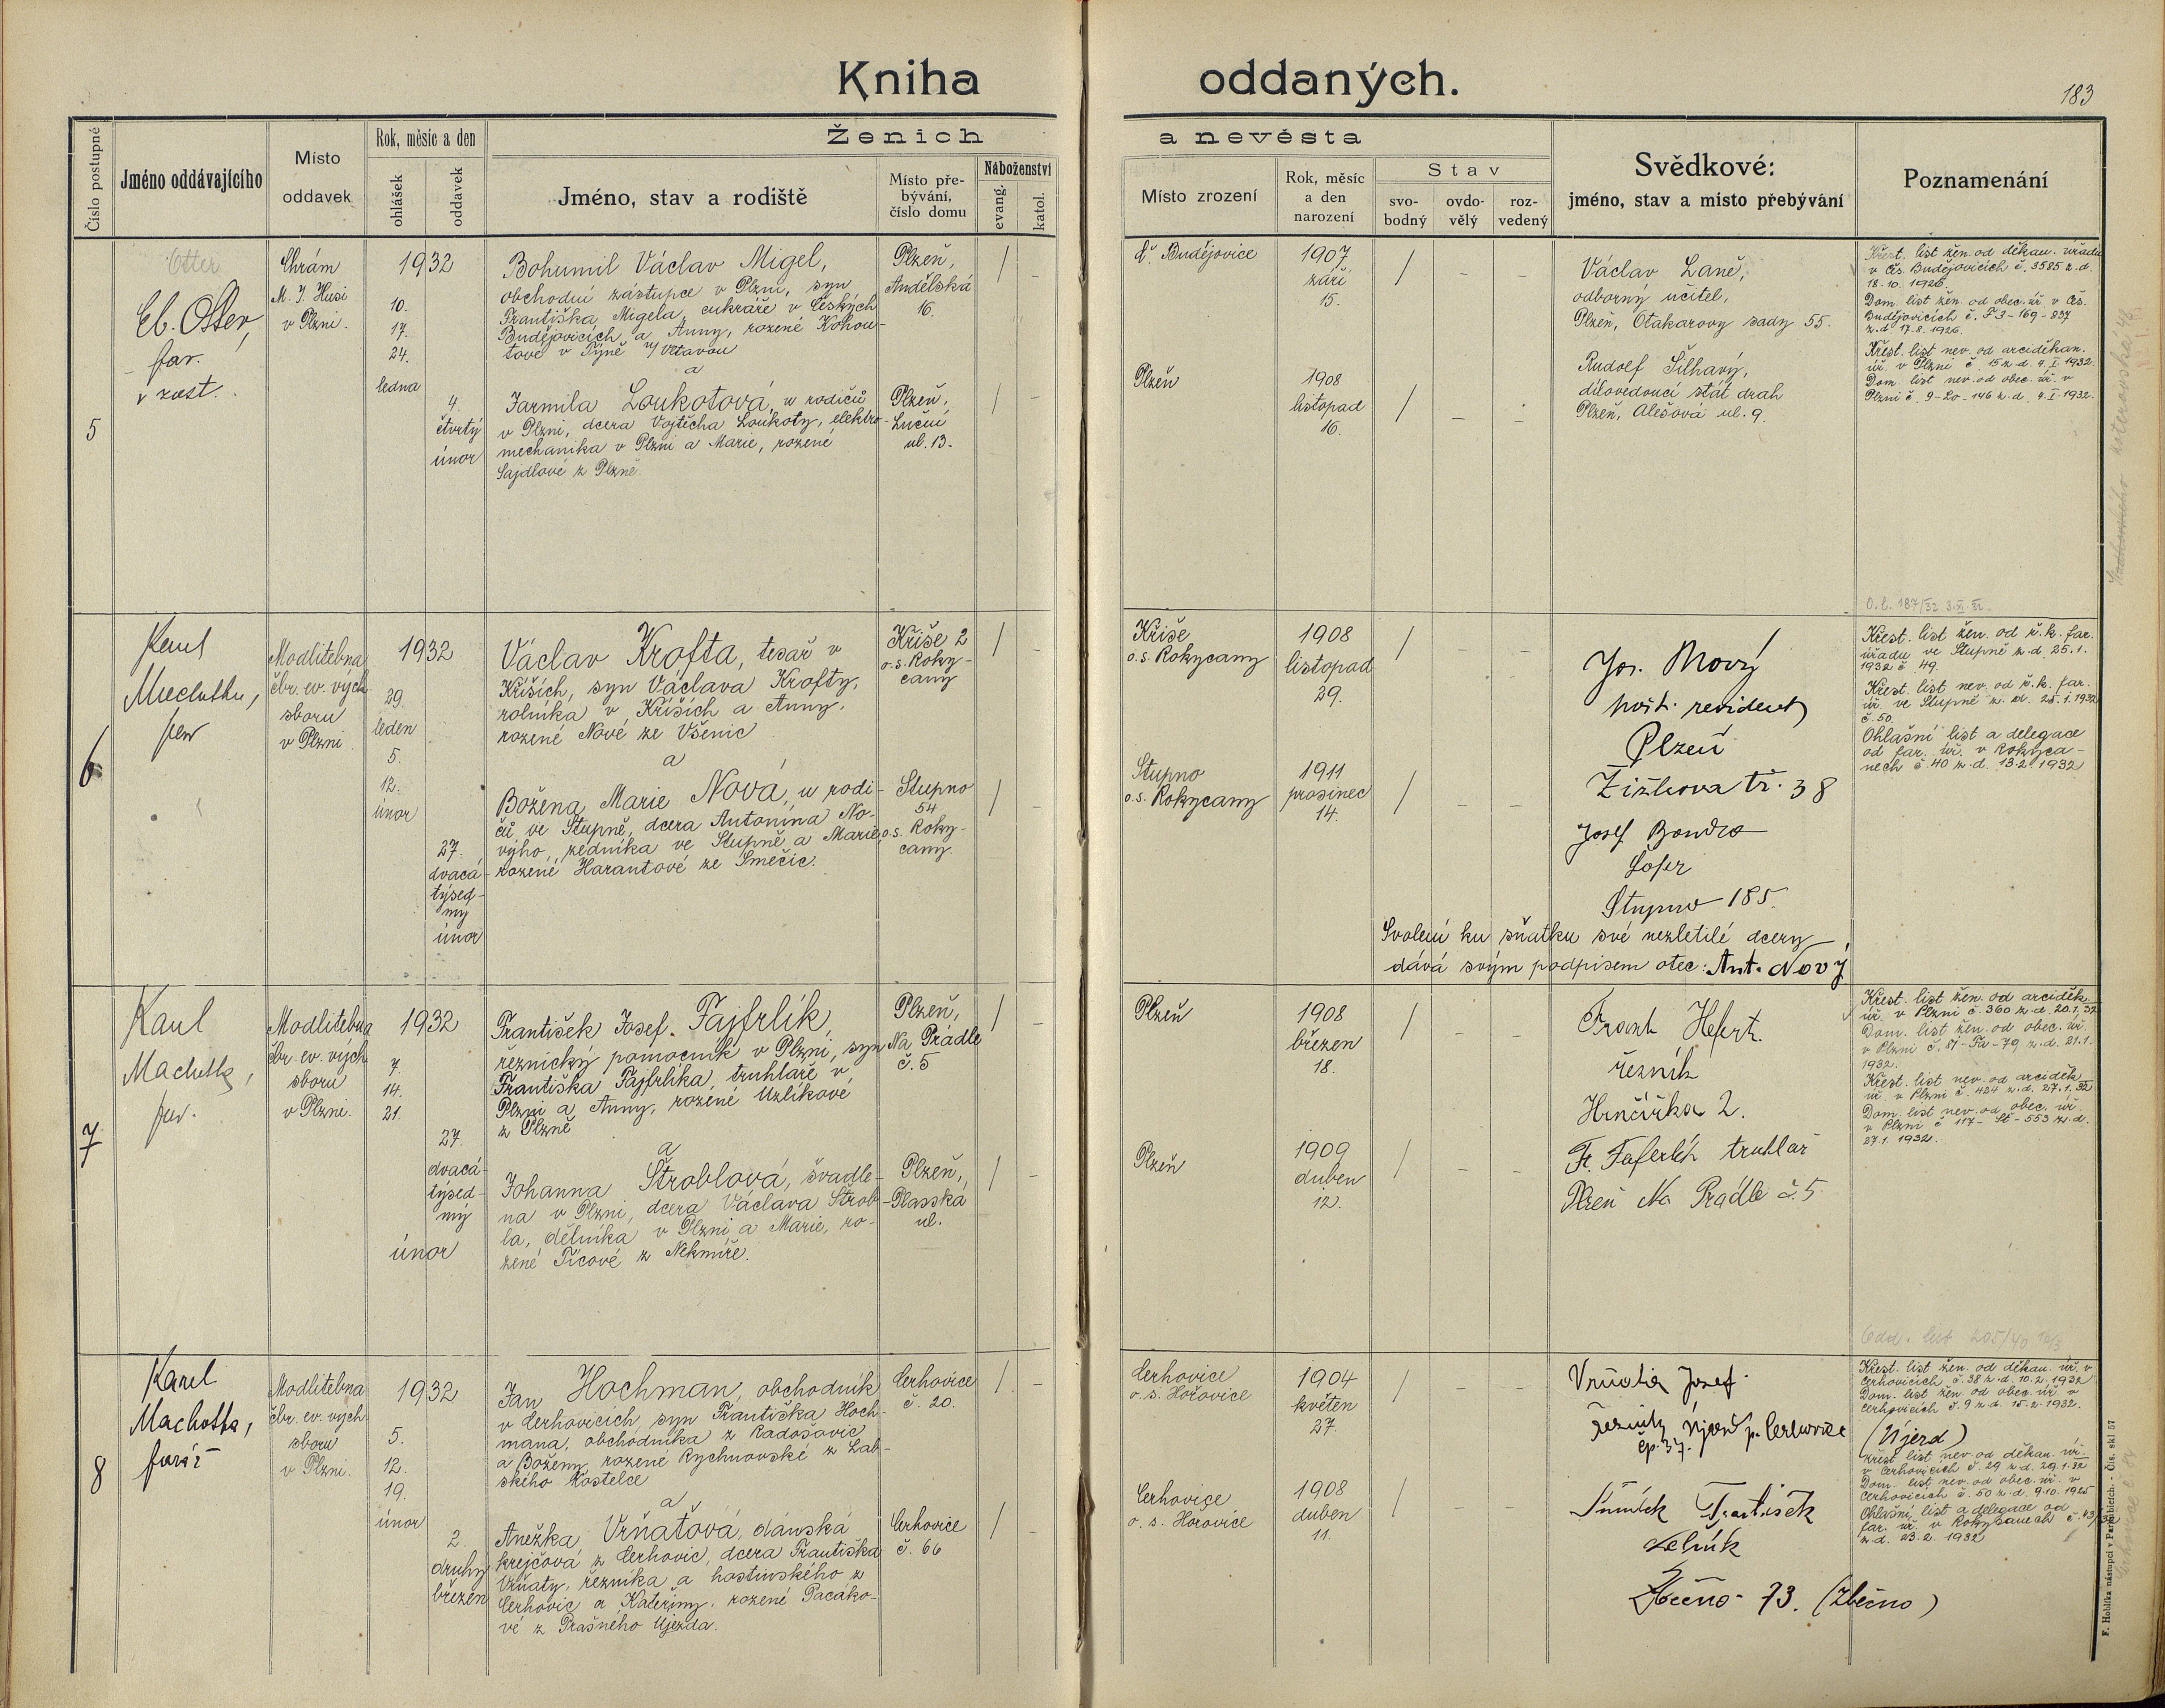 Kniha oddaných.
183
Číslo postupné
Jméno oddávajícího
Místo
oddavek
Rok, měsíc a den
ohlášek
oddavek
Ženich a nevěsta
Jméno, stav a rodiště
Místo pře-
bývání,
číslo domu
Náboženství
evang.
katol.
Místo zrození
Rok, měsíc
a den
narození
Stav
svo-
bodný
ovdo-
vělý
roz-
vedený
Svědkové:
jméno, stav a místo přebývání
Poznamenání
5
Otter
Eb. Otter,
far.
v zast.
Chrám
M. J. Husi
v Plzni.
1932
10.
17.
24.
ledna
4.
čtvrtý
únor
Bohumil Václav Migel,
obchodní zástupce v Plzni, syn
Františka Migela, cukráře v Českých
Budějovicích a Anny, rozené Kohou-
tové v Týně n/Vltavou
a
Jarmila Loukotová, u rodičů
v Plzni, dcera Vojtěcha Loukoty, elektro-
mechanika v Plzni a Marie, rozené
Sajdlové z Plzně.
Plzeň,
Andělská
16.
Plzeň,
Luční
ul. 13.
/ -
/ -
Č. Budějovice
1907
září
15.
/ - -
Plzeň
1908
listopad
16.
/ - -
Václav Laně,
odborný učitel,
Plzeň, Otakarovy sady 55.
Rudolf Šilhavý,
dílovedoucí stát. drah
Plzeň, Alešová ul. 9.
Křest. list žen. od děkan. úřadu
v Čes. Budějovicích č. 3585 z. d.
18. 10. 1926.
Dom. list žen. od obec. úř. v Čes.
Budějovicích č. F3-169-837
z. d. 17. 8. 1926.
Křest. list nev. od arciděkan.
úř. v Plzni č. 15 z. d. 4. I. 1932.
Dom. list nev. od obec. úř. v
Plzni č. 9-Lo-146 z. d. 4. I. 1932.
6
Karel
Machotka,
far.
Modlitebna
čbr. ev. vých.
sboru
v Plzni.
1932
29.
leden
5.
12.
únor
27.
dvacá-
týsed-
mý
únor
Václav Krofta, tesař v
Kříších, syn Václava Krofty,
rolníka v Kříších a Anny,
rozené Nové ze Všenic
a
Božena Marie Nová, u rodi-
čů ve Stupně, dcera Antonína No-
vého, zedníka ve Stupně a Marie,
rozené Harantové ze Smečic.
Kříše 2
o.s. Roky-
cany
Stupno
54
o.s. Roky-
cany.
/ -
/ -
Kříše
o.s. Rokycany
1908
listopad
29.
/ - -
Stupno
o.s. Rokycany
1911
prosinec
14.
/ - -
Jos. Nový
pošt. revident
Plzeň
Žižkova tř. 38
Josef Bondra
Stupno 185.
Svolení ku sňatku své nezletilé dcery
dává svým podpisem otec: Ant. Nový
O. l. 187/32 3. XI. 32.
Křest. list žen. od ř. k. far.
úřadu ve Stupně z. d. 25. 1.
1932 č 49.
Křest. list nev. od ř. k. far.
úř. ve Stupně z. d. 25. 1. 1932
č. 50.
Ohlašní list a delegace
od far. úř. v Rokyca-
nech č. 40 z. d. 13. 2. 1932
7
Karel
Machotka,
far.
Modlitebna
čbr. ev. vých
sboru
v Plzni.
1932
7.
14.
21.
27.
dvacá-
týsed-
mý
únor
František Josef Fajfrlík,
řeznický pomocník v Plzni, syn
Františka Fajfrlíka, truhláře v
Plzni a Anny, rozené Uzlíkové
z Plzně
a
Johanna Štroblová, švadle-
na v Plzni, dcera Václava Štrob-
la, dělníka v Plzni a Marie, ro-
zené Ticové z Nekmíře.
Plzeň,
Na Prádle
č. 5
Plzeň,
Plasská
ul.
/ -
/ -
Plzeň
1908
březen
18.
/ - -
Plzeň
1909
duben
12.
/ - -
Frant. Hefert.
řezník
Hrnčířka 2.
Fr. Faferlík truhlář
Plzeň Na Prádle č. 5.
Křest. list žen. od arciděk.
úř. v Plzni č. 360 z. d. 20. 1. 32
Dom. list žen. od obec. úř.
v Plzni č. 51-Fa-79 z. d. 21. 1.
1932.
Křest. list nev. od arciděk.
úř. v Plzni č. 424 z. d. 27. 1. 32
Dom. list nev. od obec. úř.
v Plzni č 117-St-553 z. d.
27. 1. 1932.
Odd. list 205/40
8
Karel
Machotka,
farář
Modlitebna
čbr. ev. vých
sboru
v Plzni.
1932
5.
12.
19.
únor
2.
druhý
březen
Jan Hochman, obchodník
v Cerhovicích, syn Františka Hoch-
mana, obchodníka z Radošovic
a Boženy, rozené Rychnovské z Lab-
ského Kostelce
a
Anežka Vrňatová, dámská
krejčová z Cerhovic, dcera Františka
Vrňaty, řezníka a hostinského z
Cerhovic a Kateřiny, rozené Pacáko-
vé z Prašného Újezda.
Cerhovice
č. 20.
Cerhovice
č. 66
/ -
/ -
Cerhovice
o. s. Hořovice
1904
květen
27.
/ - -
Cerhovice
o. s. Hořovice
1908
duben
11.
/ - -
Vrňata Josef
řezník Újezd p. Cerhovice
čp. 37.
(Újezd)
František
Zbečno 73. (Zbečno)
Křest. list žen. od děkan. úř. v
Cerhovicích č. 38 z. d. 10. 2. 1932
Dom. list žen. od obec. úř. v
Cerhovicích č. 9 z. d. 15. 2. 1932.
Křest list nev. od děkan. úř.
v Cerhovicích č. 29 z. d. 29. 1. 32
Dom. list nev. od obec. úř. v
Cerhovicích č. 50 z. d. 9. 10. 1925
Ohlašní list a delegace od
far. úř. v Rokycanech č. 43/32
z. d. 23. 2. 1932
F. Hoblíka nástupci v Pardubicích. - Čís. skl 57